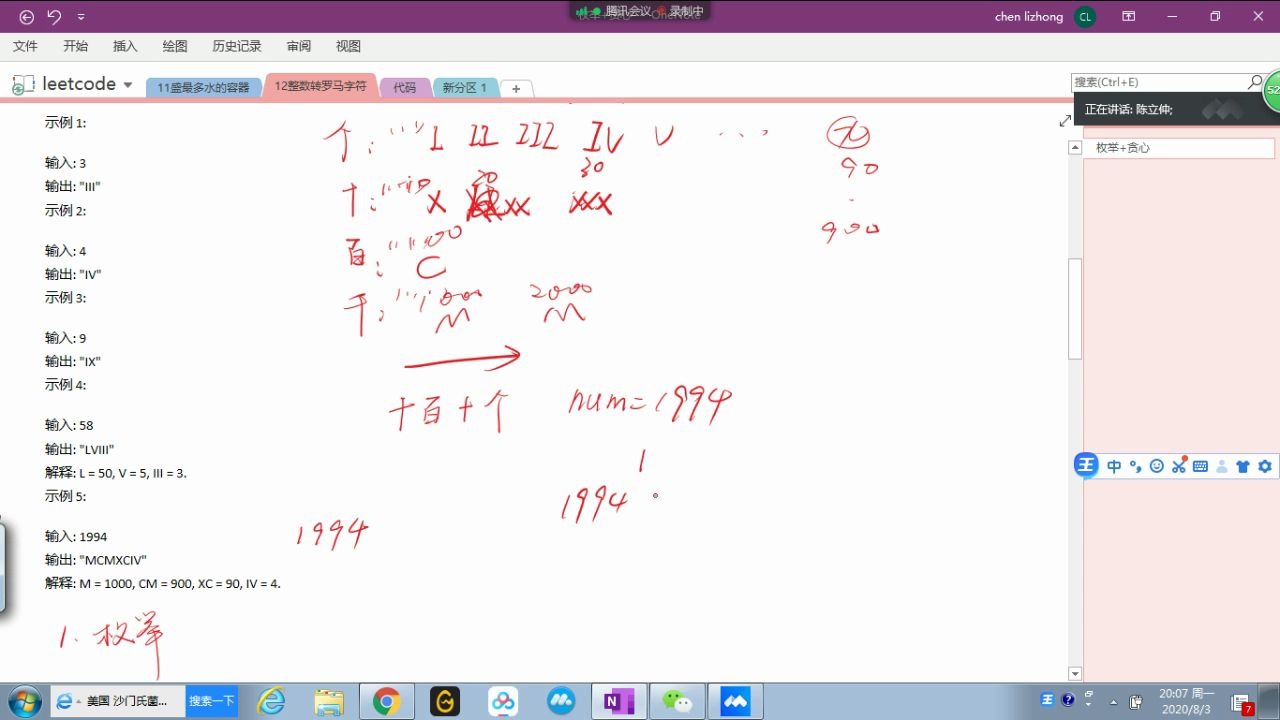 腾讯会议 录制中
枚举+贪心 - OneNote
chen lizhong CL
文件 开始 插入 绘图 历史记录 审阅 视图
leetcode 11盛最多水的容器 12整数转罗马字符 代码 新分区 1 +
搜索(Ctrl+E)
52
正在讲话: 陈立仲;
枚举+贪心
示例 1:
输入: 3
输出: "III"
示例 2:
输入: 4
输出: "IV"
示例 3:
输入: 9
输出: "IX"
示例 4:
输入: 58
输出: "LVIII"
解释: L = 50, V = 5, III = 3.
示例 5:
输入: 1994
输出: "MCMXCIV"
解释: M = 1000, CM = 900, XC = 90, IV = 4.
个: "" I II III IV V ...
90
30
十: "" X XX XXX
900
百: "" 100
C
千: "" 1000 2000
M M
千百十个 num=1994
1
1994
1994
1. 枚举
中
美国 沙门氏菌... 搜索一下
20:07 周一
2020/8/3
7